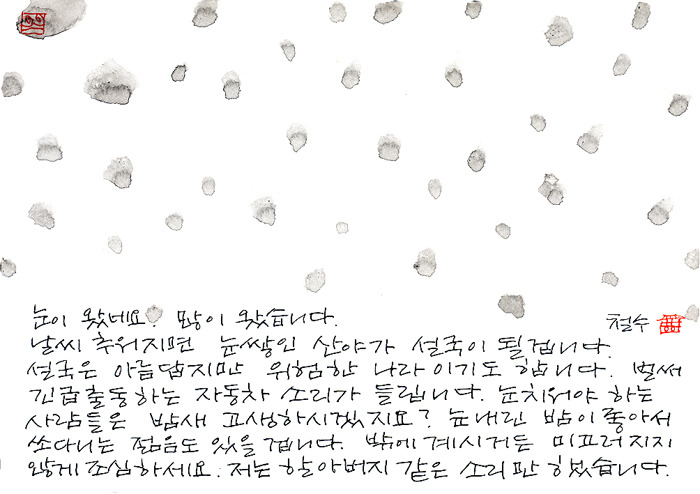 눈이 왔네요. 많이 왔습니다.
철수
날씨 추워지면 눈쌓인 산야가 설국이 될겁니다.
설국은 아름답지만 위험한 나라이기도 합니다. 벌써
긴급출동하는 자동차 소리가 들립니다. 눈치워야 하는
사람들은 밤새 고생하시겠지요? 눈내린 밤이 좋아서
쏘다니는 젊음도 있을 겁니다. 밖에 계시거든 미끄러지지
않게 조심하세요. 저는 할아버지 같은 소리만 하였습니다.